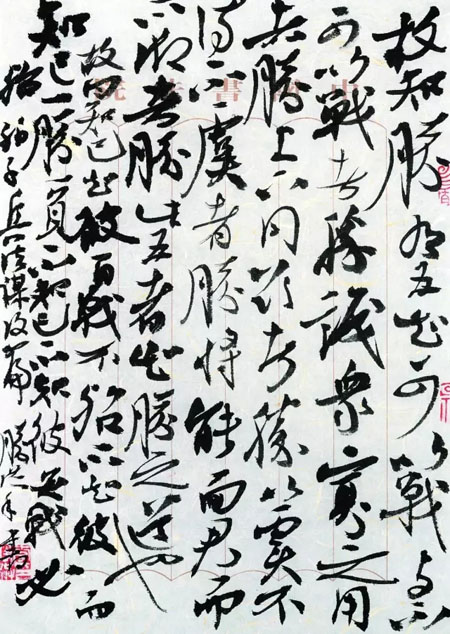 故知勝有五知可以戰与不
可以戰者勝識衆寡之用
者勝上下同欲者勝以虞不
待不虞者勝將能而君而
不御者勝此五者知勝之道也
故曰知己知彼百戰不殆不知彼而
知己一勝一負不知己不知彼每戰必
殆孫子兵法謀攻篇